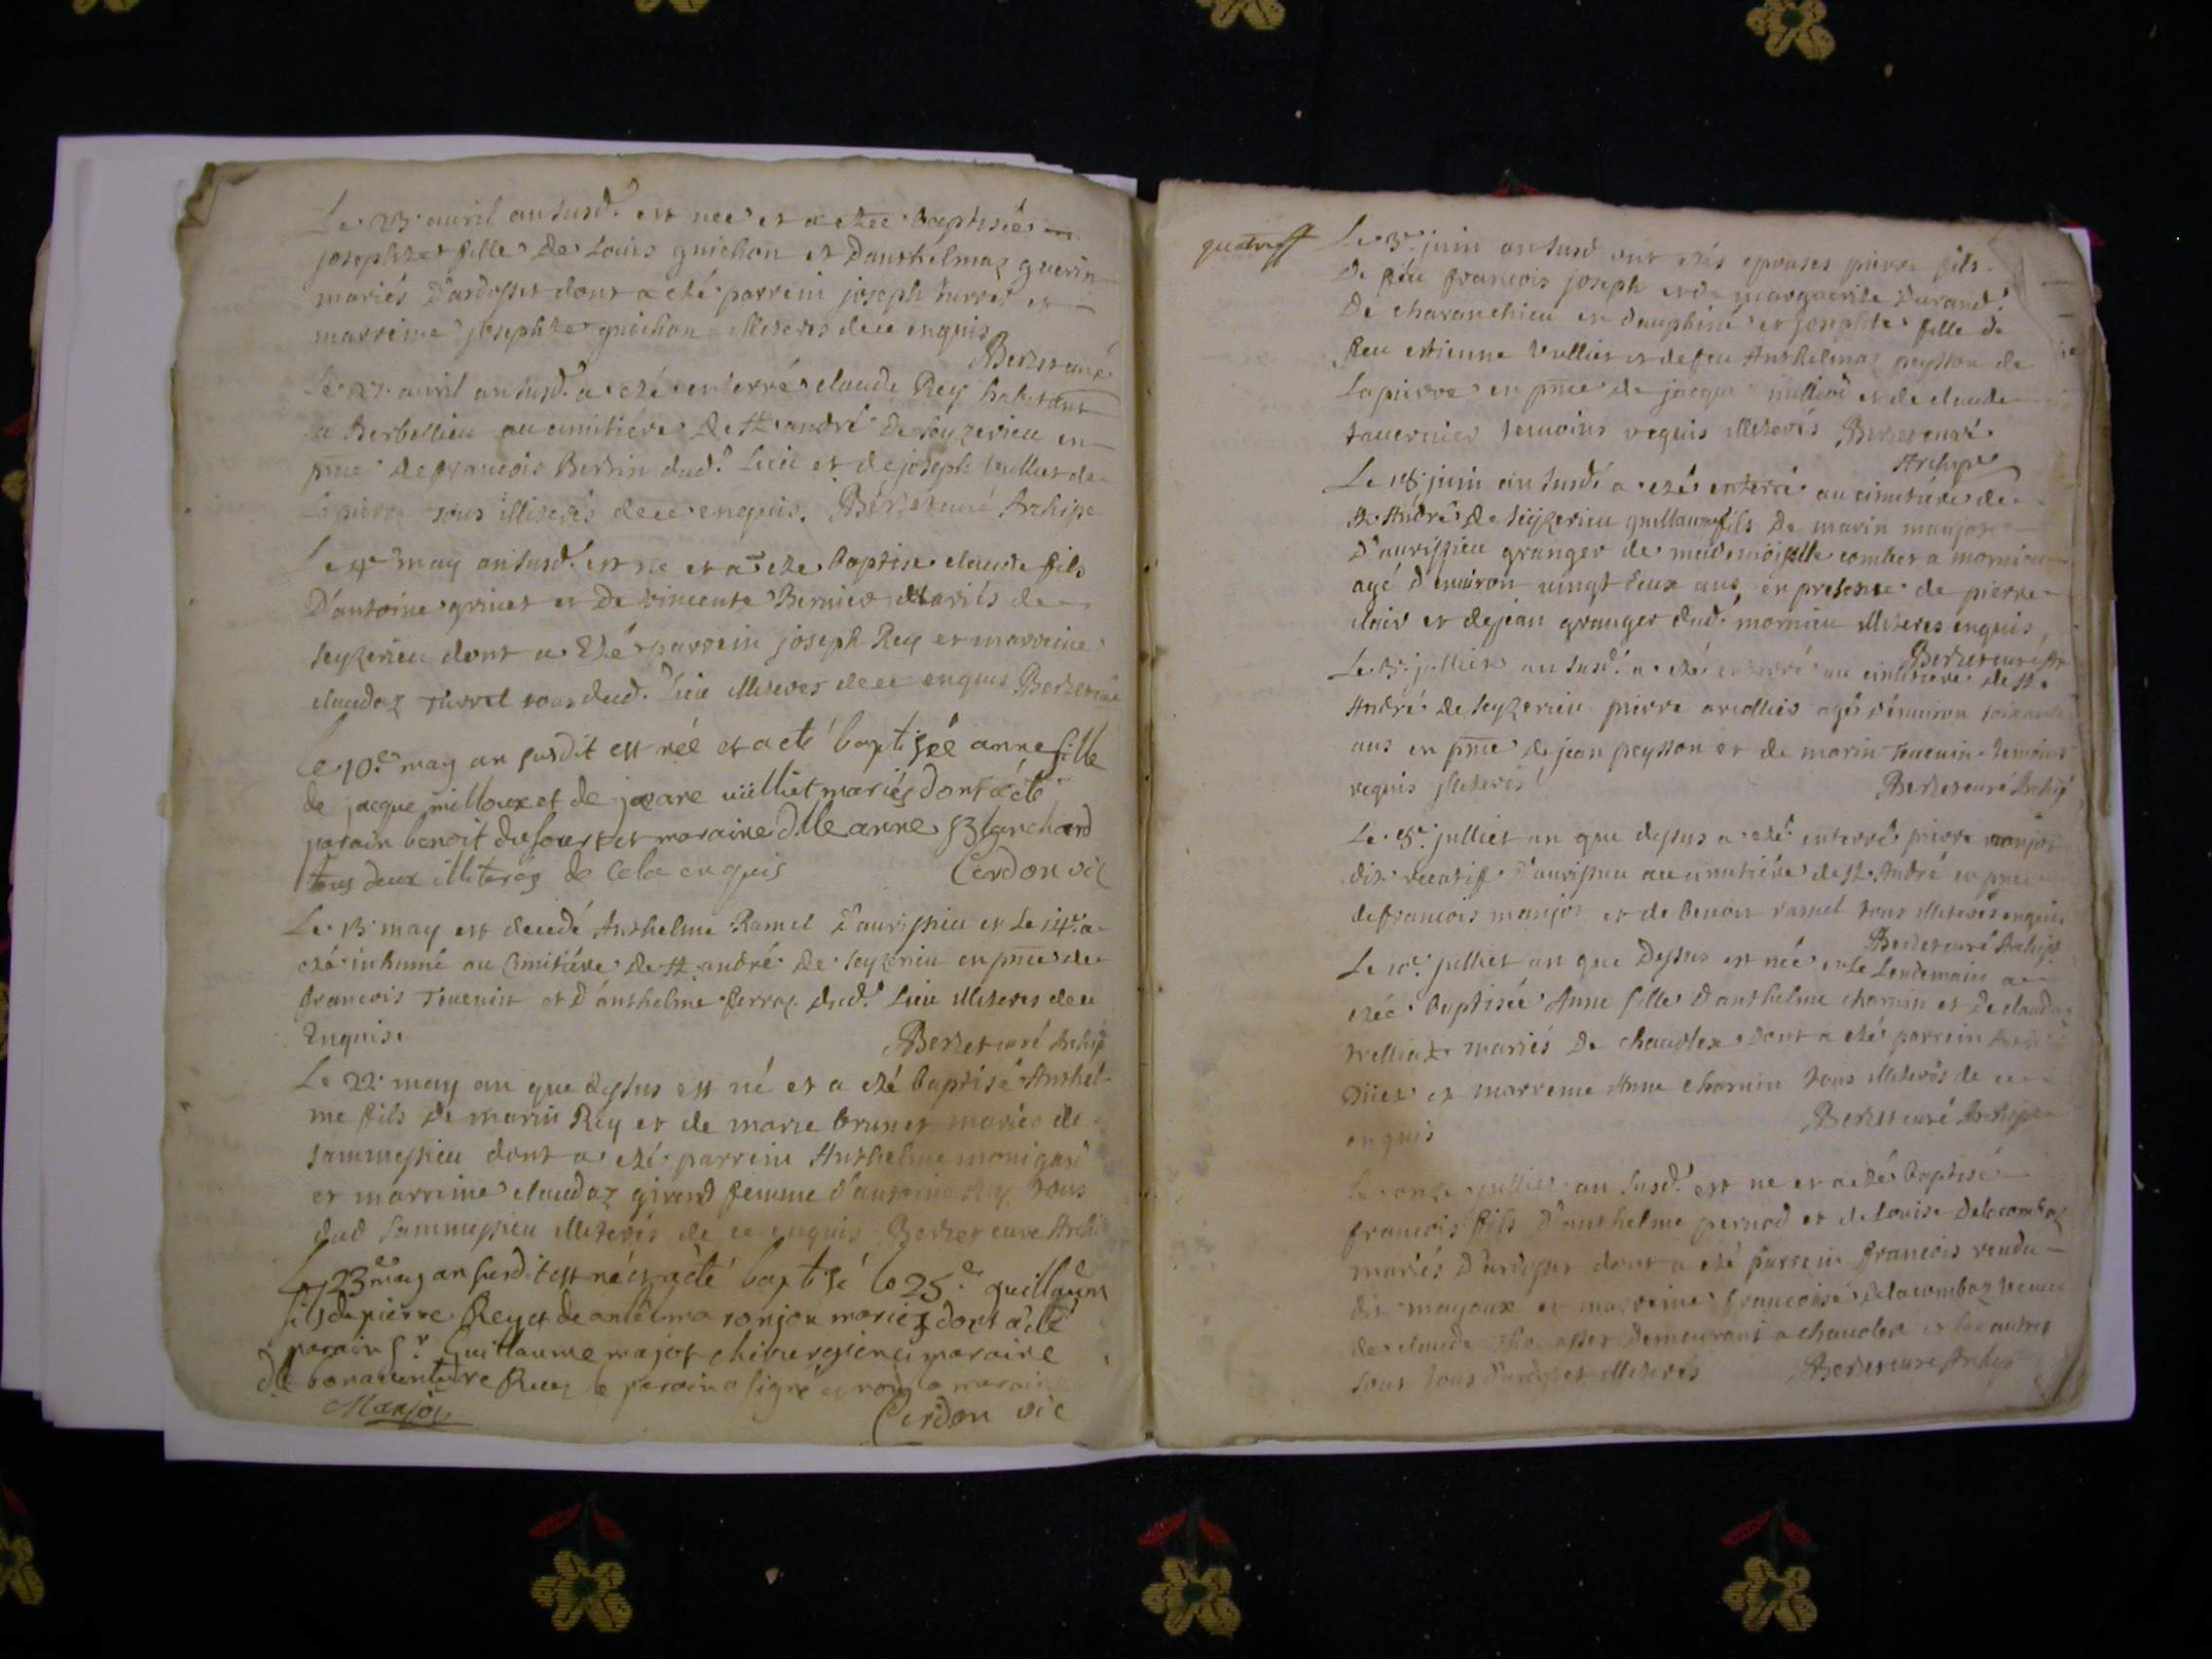 Le 23 auril an susd. est nee et a etee baptisée
josephte fille de Louis guichon et danthelmaz guerin
mariés d'ardosset dont a eté parrein joseph turrel et
marreine josephte guichon illiterés dece enquis
Berzet curé
Le 27 auril an susd. a eté enterré claude Rey habitant
a Berbellieu au cimitiére de st andré de seyzerieu en
pnce de francois Bertin dud. Lieu et de joseph vulliet de
Lapierre tous illiterés dece enquis. Berzet curé Archipe
Le 4e may an susd. est ne et a ete baptise claude fils
D'antoine grinet et de vincente Bernier Mariés de
seyzerieu dont a eté parrein joseph Rey et marreine
claudaz Turrel tous dud. Lieu illiteres dece enquis Berzet curé
le 10e may an susdit est néé et a eté baptiséé anne fille
de jacque milloux et de vülliet mariés dont a eté
parain benoit dufour et maraine dlle anne Blanchard
tous deux illiteréz de cela enquis Cerdon vic
Le 13 may est decedé Anthelme Ramel D'aurissieu et Le 14e a
eté inhumé au cimitiére de st andré de seyzerieu en pnce de
francois Teuenin et D'anthelme ferraz dud. Lieu illiteres dece
Enquis.
Berzet curé Archip
Le 22 may an que dessus est né et a eté baptisé Anthel-
me fils de marin Rey et de marie brunet mariés de
sammessieu dont a eté parrein Anthelme monigard
et marreine claudaz girard femme d'antoine Rey tous
dud sammessieu illiterés de ce enquis Berzet curé Archi
Le 23me may an susdit est né et a eté baptisé le 25e guillaume
fils de pierre Rey et de antelma ronjon mariez dont a eté
parain Sr Guillaume majot chirurgien et maraine
dlle bonauenture Rey le parain a signé et non la maraine
Manjot Cerdon vic
Le 3e juin an susd ont etés epousés pierre fils
de féu francois joseph et de margueritte durand
de charanchieu en dauphiné et josephte fille de
feu estienne vulliet et de feu Anthelmaz peysson de
Lapierre en pnce de jacque et de claude
tauernier temoins requis illiterés Berzet curé
Archip
Le 18 juin an susd. a eté enterré au cimitiére de
st André de seyzerieu guillaume fils de marin manjot
d'aurissieu granger de mademoiselle combet a mornieu
agé d'enuiron uingt deux ans, en presence de pierre
clair et de jean granger dud. mornieu illiteres enquis,
Berzet curé Ar
Le julliet an susd. a eté enterré au cimitiere de st
André de seyzerieu pierre agé d'enuiron soixante
ans en pnce de jean peysson et de marin Teuenin temoins
requis illiterés
Berzet curé Archip
Le 8e julliet an que dessus a eté enterré pierre manjot
dit D'aurissieu au cimitiére de st André en pnce
de francois manjot et de benoit ramel tous illiterés enquis
Berzet curé Archip
Le 10e julliet an que dessus est née et Le Lendemain a
etéé baptisée Anne fille d'anthelme charuin et de claudaz
mariés de chauolex dont a eté parrein
et marreine Anne charuin tous illiterés de ce
enquis Berzet curé Archipe
Le onze julliet an susd. est ne et a eté baptisé
francois fils d'anthelme pernod et de louise delacombaz
mariés d'ardosset dont a eté parrein francois rendu
dit mayoux et marreine francoise delacombaz veuue
de claude demeurant a chauolex et les autres
sont tous d'ardosset illiterés Berzet curé Archip